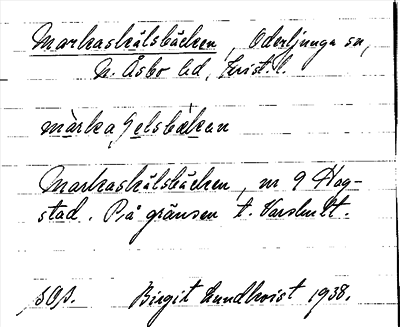 Markaskälsbäcken, Oderljunga sn,
N. Åsbo hd, Krist. l.
màrka, Selsbäkan
Markaskälsbäcken, nr 9 Hag-
stad. På gränsen t. Varshult.
sOp. Birgit Lundkvist 1938.